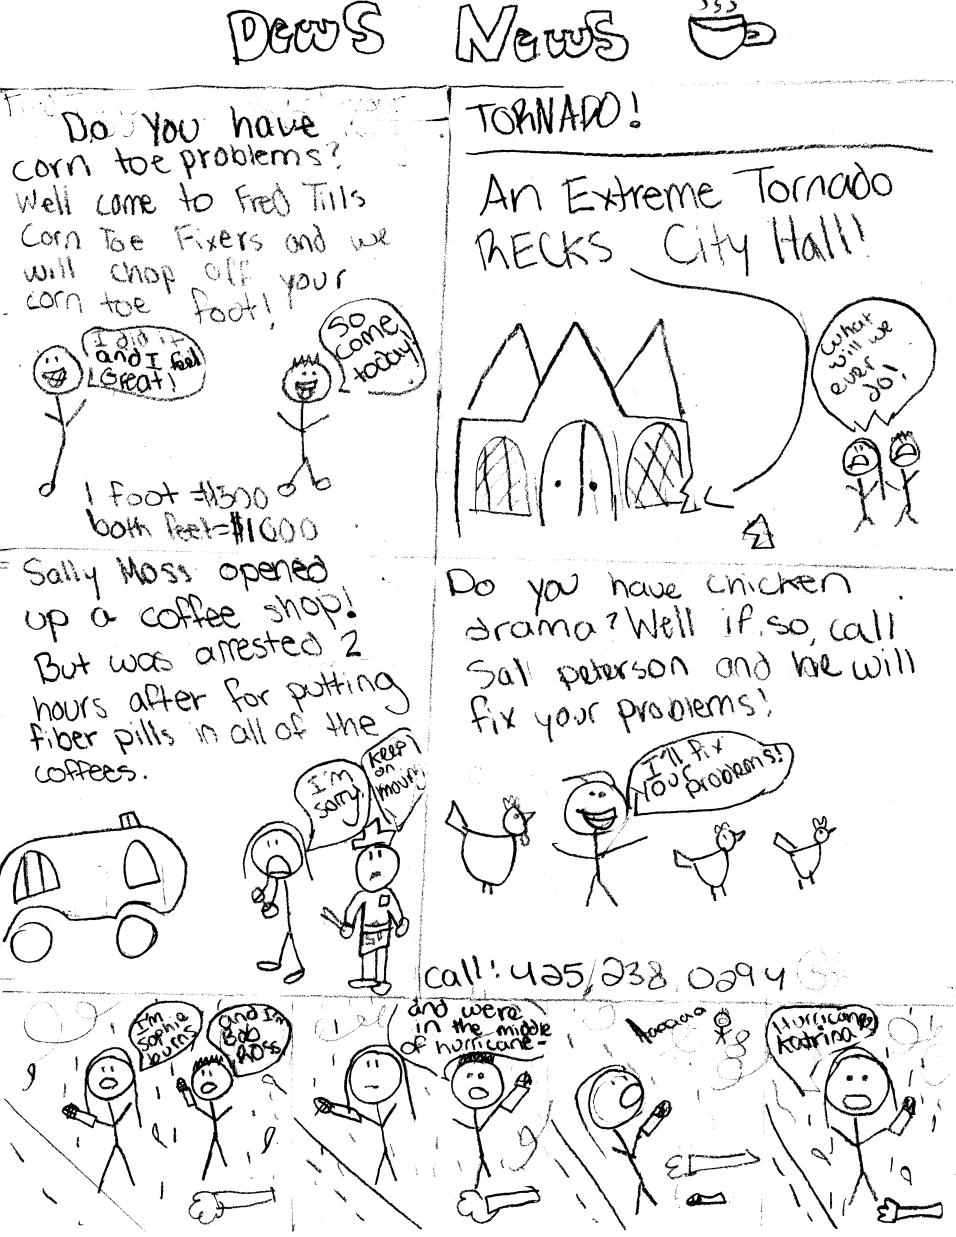 Dews News
Do you have
corn toe problems?
Well come to Fred Tills
Corn Toe Fixers and we
will chop off your
corn toe foot!
I did it
and I feel
Great!
So
come
today!
1 foot = $500
both feet = $1000
TORNADO!
An Extreme Tornado
RECKS City Hall!
What
will we
ever
do!
Sally Moss opened
up a coffee shop!
But was arrested 2
hours after for putting
fiber pills in all of the
coffees.
I'm
sorry
keep
on
moving
Do you have chicken
drama? Well if so, call
Sal peterson and he will
fix your problems!
I'll fix
your
problems!
call: 425, 238, 0294
I'm
Sophie
burns
and I'm
Bob
Ross
and were
in the middle
of hurricane-
Aaaaaa
Hurricane
Katrina